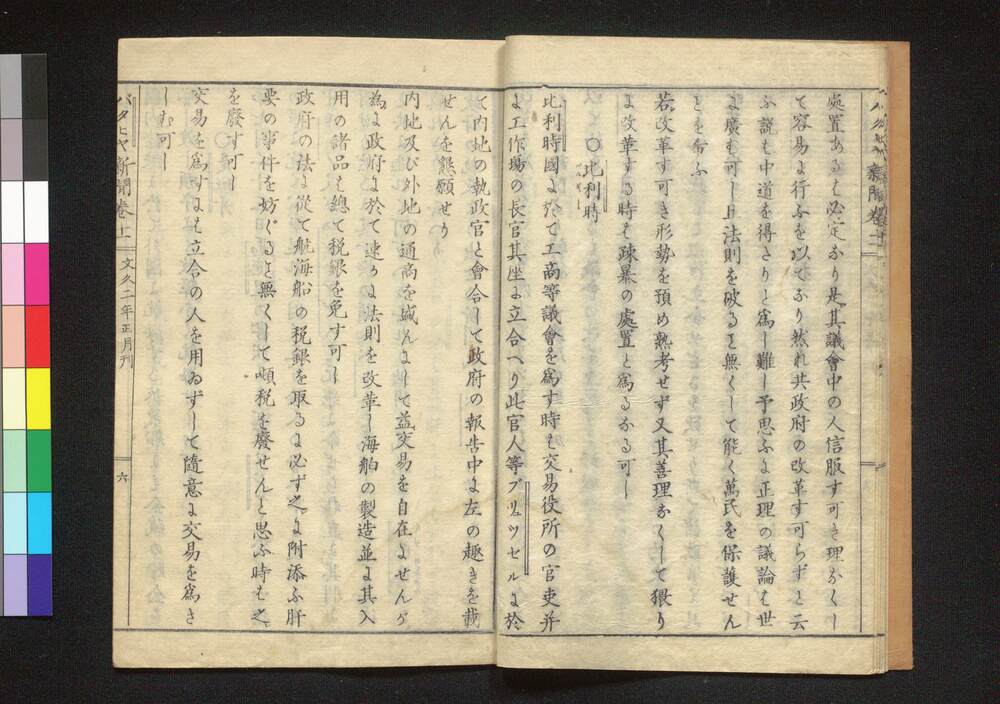 處置あるは必定なり是其議會中の人信服す可き理なくし
て容易に行ふを以てなり然れ共政府の改革す可らずと云
ふ説も中道を得たりと爲し難し予思ふに正理の議論は世
に廣む可し且法則を破ると無くして能く萬民を保護せん
とを希ふ
若改革す可き形勢を預め熟考せず又其善理なくして猥り
に改革する時は疎暴の處置と爲るなる可し
○比利時
比利時國に於て工商等議會を爲す時は交易役所の官吏并
に工作場の長官其座に立合へり此官人等ブリュツセルに於
て内地の執政官と會合して政府の報告中に左の趣きを載
せんを懇願せり
内地及び外地の通商を盛んにして益交易を自在にせんが
爲に政府に於て速かに法則を改革し海舶の製造並に其入
用の諸品は總て税銀を免す可し
政府の法に從て航海船の税銀を取るに必ず之に附添ふ肝
要の事件を妨ぐると無くして頓税を廢せんと思ふ時は之
を廢す可し
交易を爲すにも立合の人を用ゐずして隨意に交易を爲さ
しむ可し
バタヒヤ新聞卷十一 文久二年正月刊 六